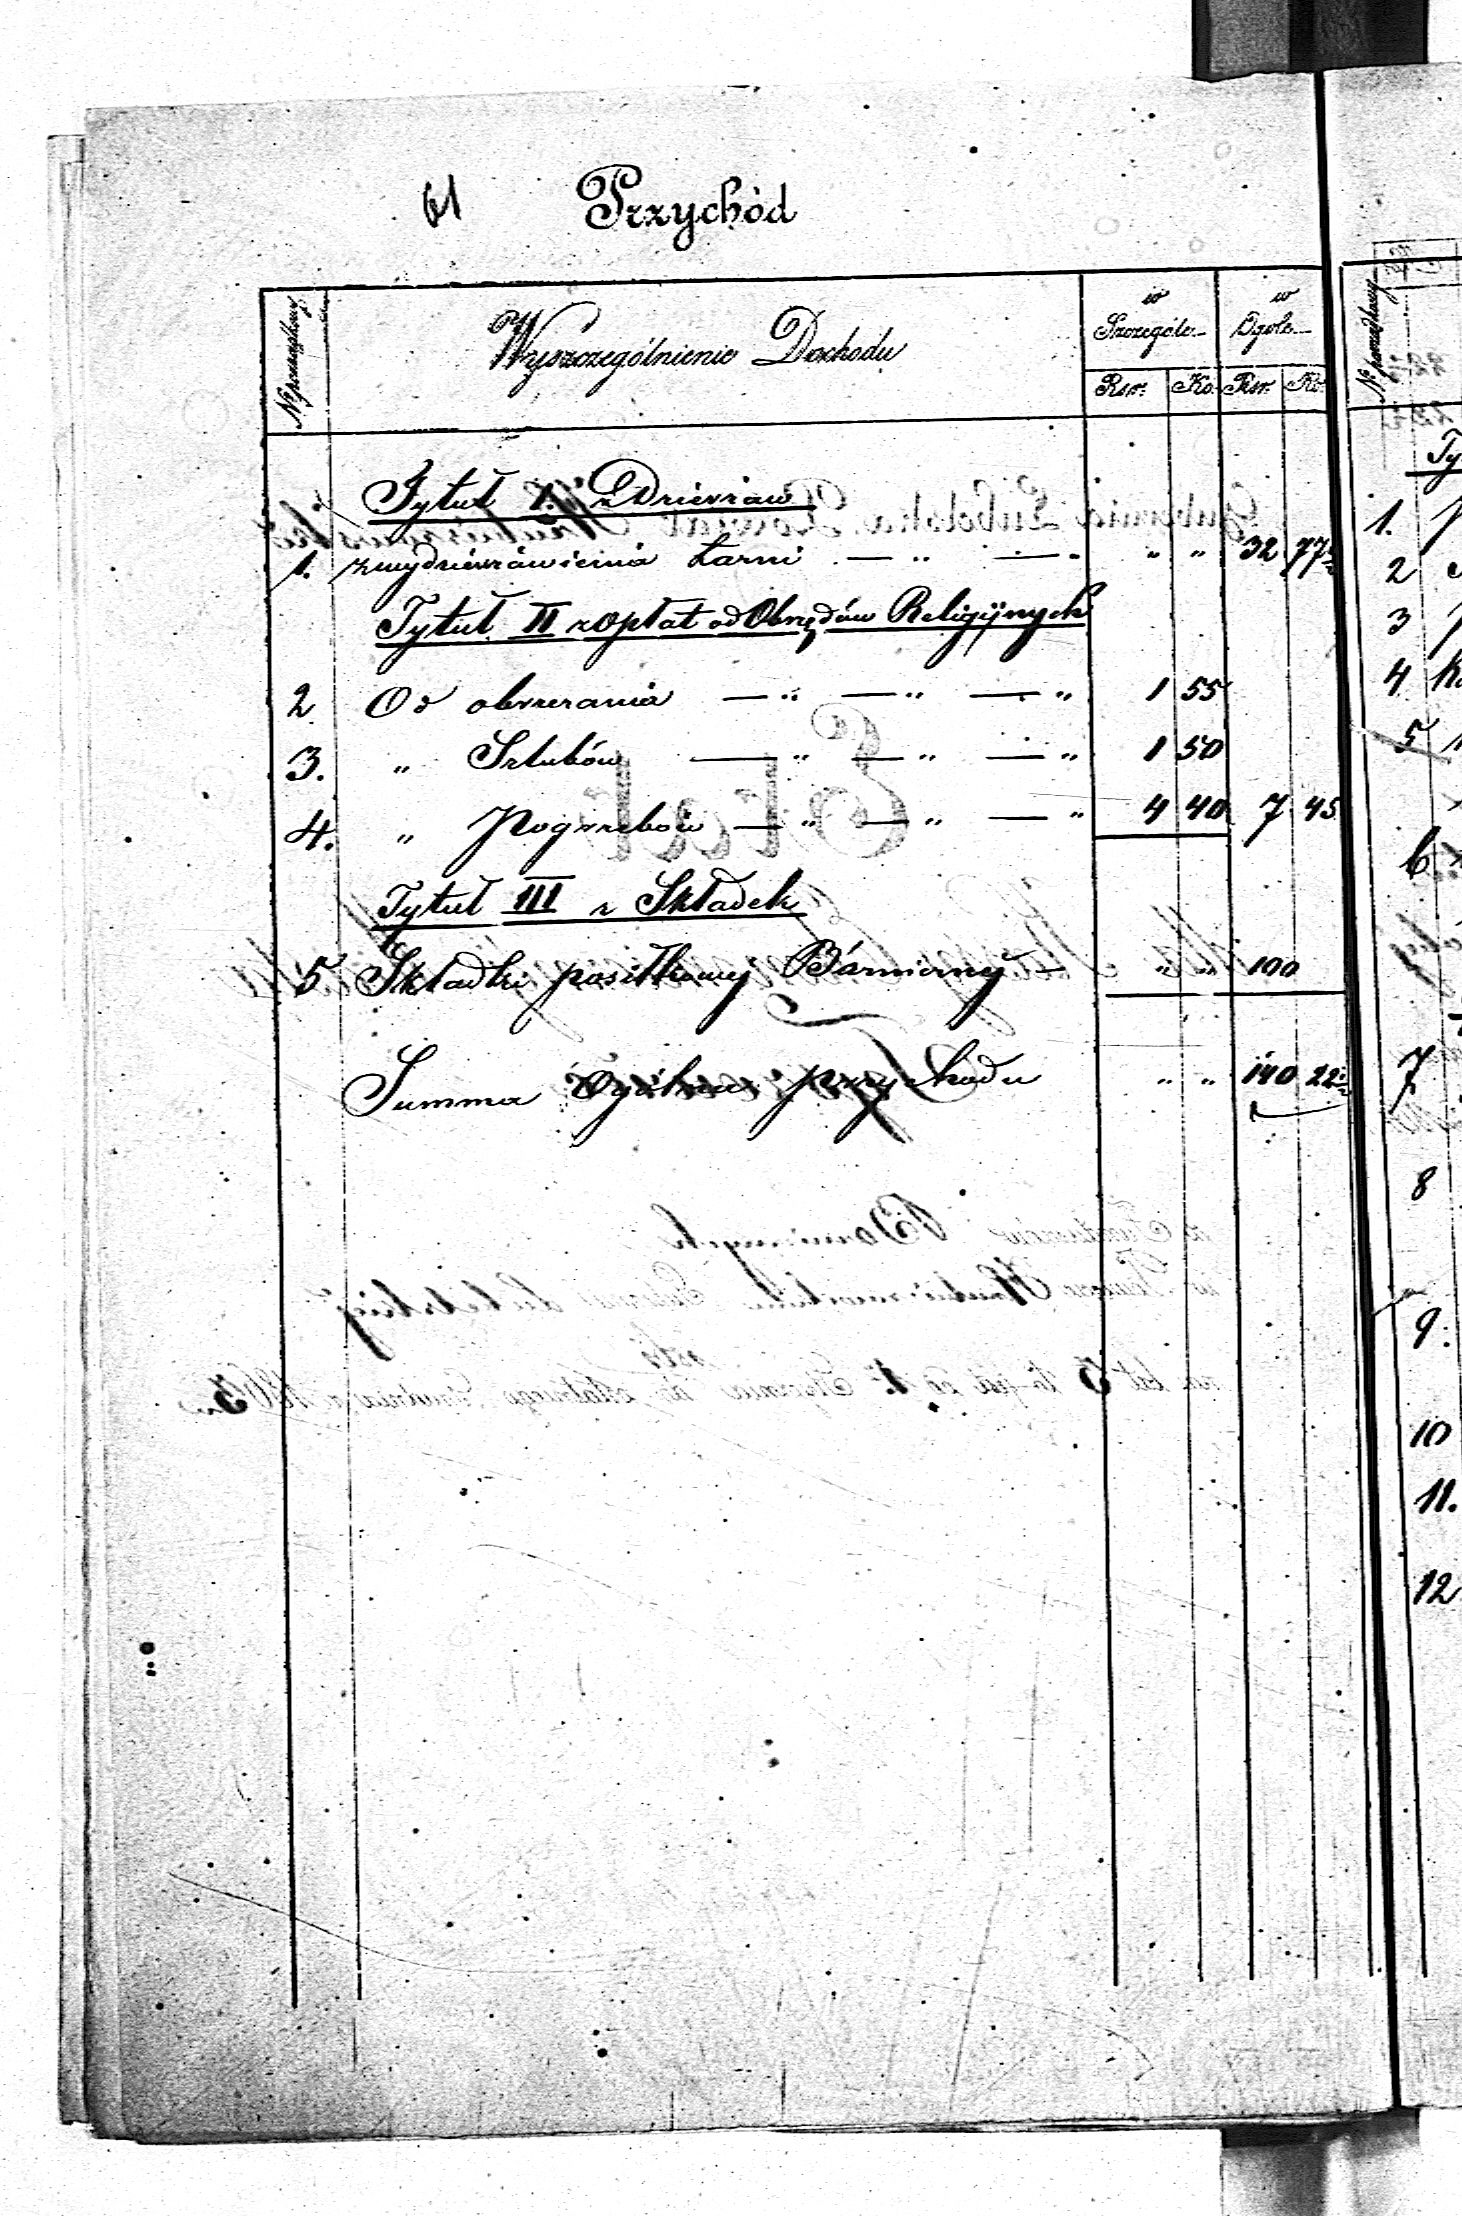 61 Przychód
№ porządkowy Wyszczególnienie Dochodu w Szczególe w Ogóle
Rsr. Ko. Rsr. Ko.
Tytuł I. z Dzierżaw
1. z wydzierżawienia Łazni — „ — „ „ „ 32 77½
Tytuł II z opłat od Obrzędów Religijnych
2 Od obrzezania — „ — „ — „ 1 55
3. „ Szlubów — „ — „ — „ 1 50
4. „ Pogrzebów — „ — „ — „ 4 40 7 45
Tytuł III z Składek
5 Składki posiłkowej Bóżniczny — „ „ 100
Summa Ogólna przychodu „ „ 140 22½
№ porządkowy
Ty
1.
2
3
4
5
6
7
8
9.
10
11.
12